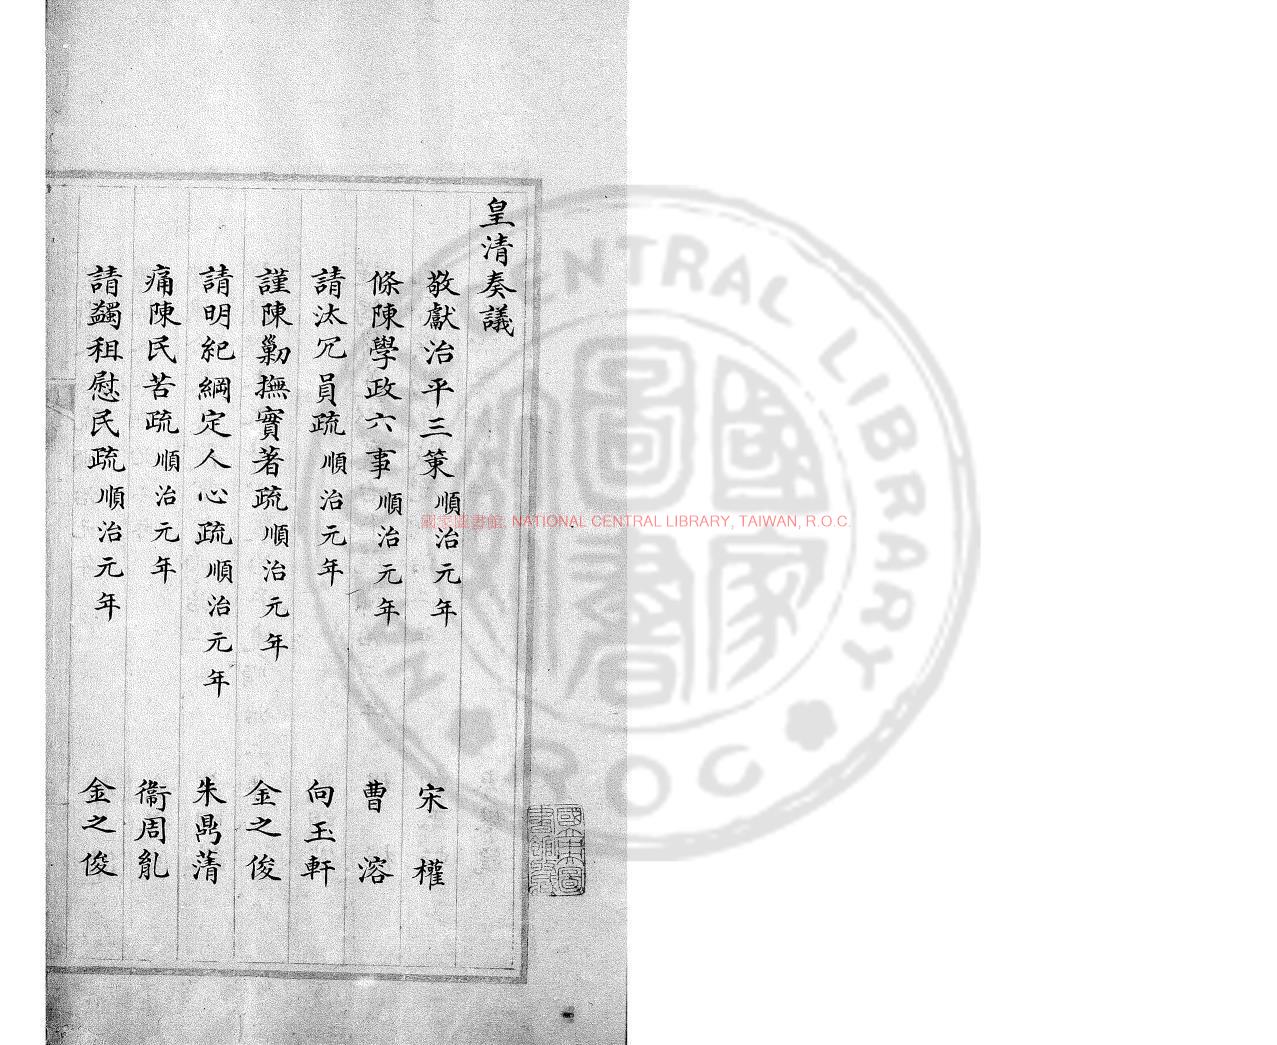 皇清奏議
敬獻治平三策順治元年 宋權
條陳學政六事順治元年 曹溶
請汰冗員疏順治元年 向玉軒
謹陳勦撫實著疏順治元年 金之俊
請明紀綱定人心疏順治元年 朱鼎蒩
痛陳民苦疏順治元年 衞周胤
請蠲租慰民疏順治元年 金之俊
國家圖書館 NATIONAL CENTRAL LIBRARY, TAIWAN, R.O.C.
NATIONAL CENTRAL LIBRARY
ROC
國家圖書